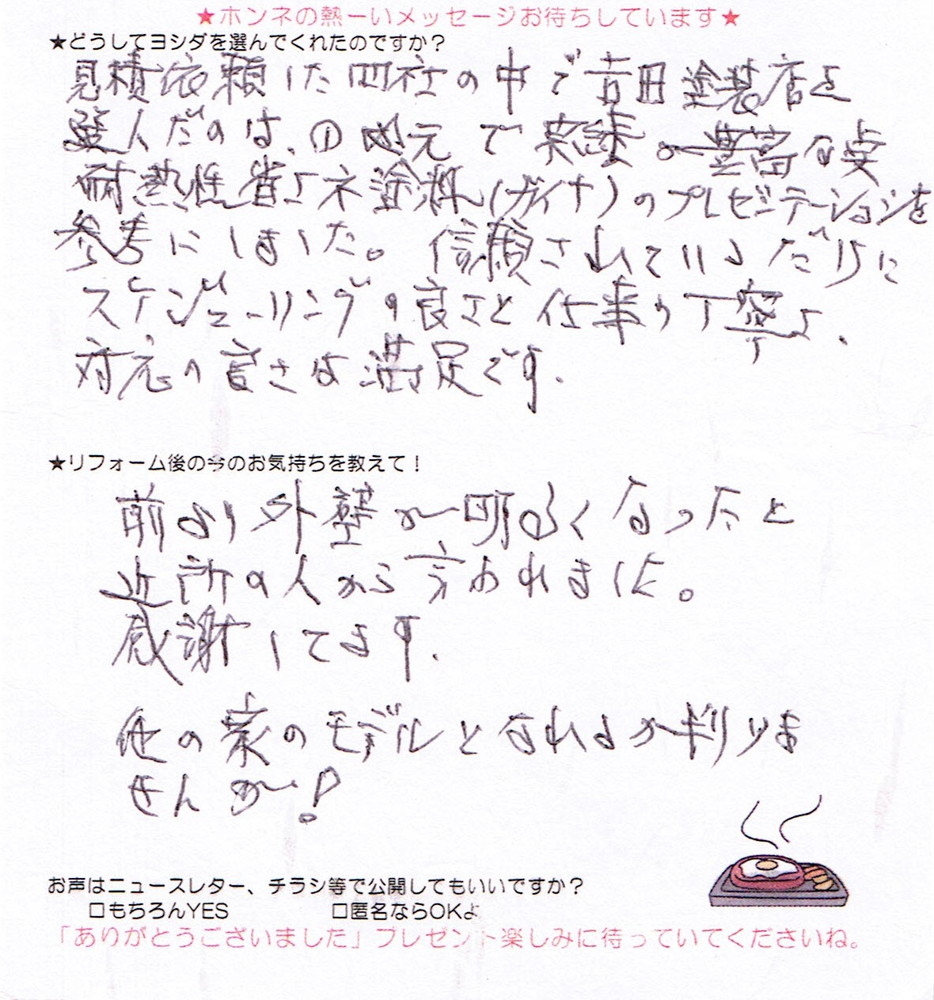 ★ホンネの熱ーいメッセージお待ちしています★
★どうしてヨシダを選んでくれたのですか？
見積依頼した四社の中で吉田塗装店を
選んだのは、① 地元で実績が豊富な点
耐熱性省エネ塗料(ガイナ)のプレゼンテーションを
参考にしました。信頼されているだけに
スケジューリングの良さと仕事の丁寧さ、
対応の良さは満足です。
★リフォーム後の今のお気持ちを教えて！
前より外壁が明るくなったと
近所の人から言われました。
感謝してます。
他の家のモデルとなれるか判りま
せんが！
お声はニュースレター、チラシ等で公開してもいいですか？
□もちろんYES □匿名ならOKよ
「ありがとうございました」プレゼント楽しみに待っていてくださいね。